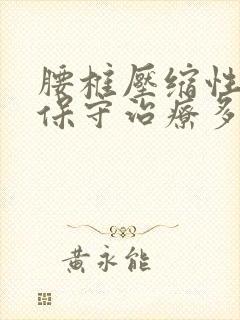 腰椎壓缩性
保守治療多
黃永能